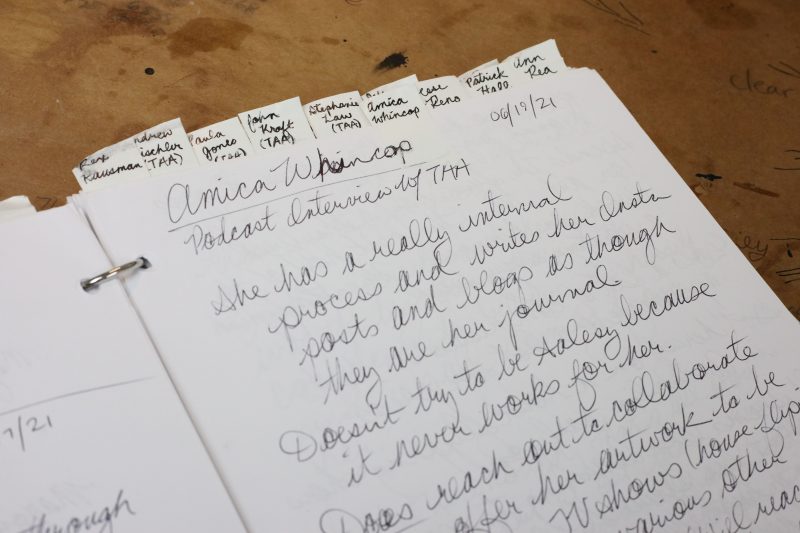 Rex
Rausman
ndrew
ischler
(TAA)
Paula
Jones
(TAA)
John
Kraft
(TAA)
Stephanie
Law
(TAA)
Amica
Whincop
Reno
Patrick
Hall
Ann
Rea
06/19/21
Amica Whincop
Podcast Interview w/ TAA
She has a really internal
process and writes her Insta
posts and blogs as though
they are her journal
Doesn't try to be salesy because
it never works for her.
Does reach out to collaborate
offer her artwork to be
TV shows (house-flip
various other
will reac
7/21
through
clear